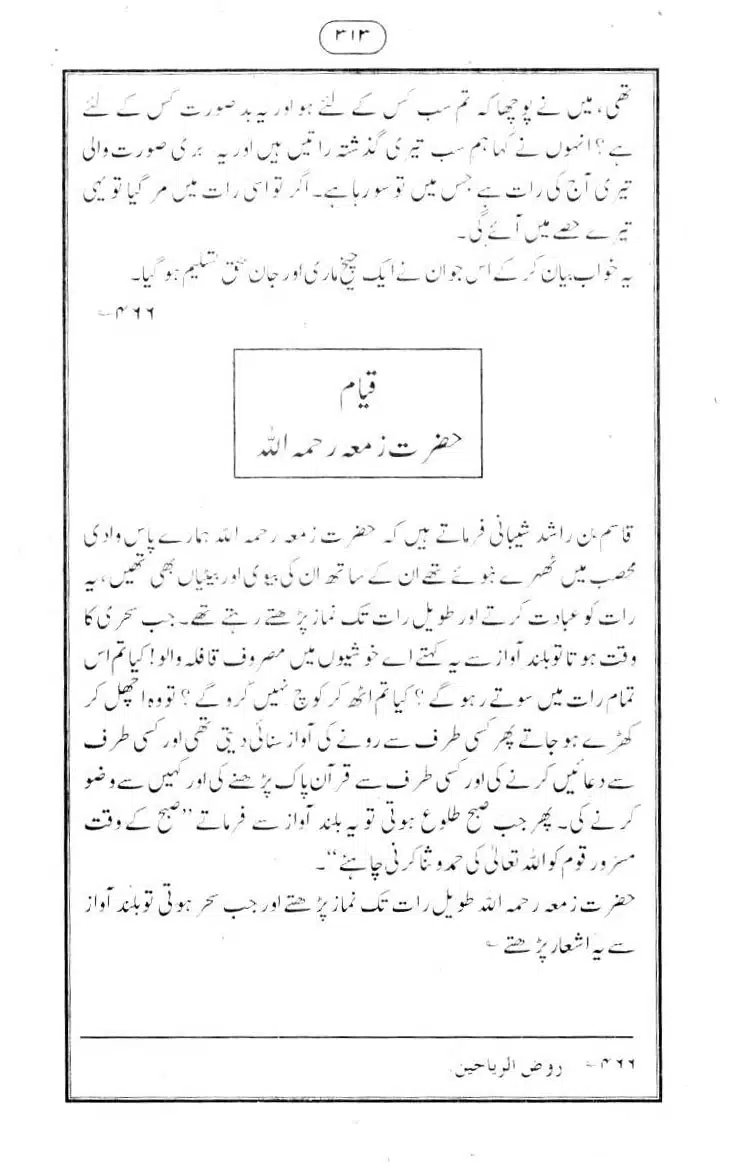 ۳۱۳
تھی، میں نے پوچھا کہ تم سب کس کے لئے ہو اور یہ بد صورت کس کے لئے
ہے؟ انہوں نے کہا ہم سب تیری گذشتہ راتیں ہیں اور یہ بری صورت والی
تیری آج کی رات ہے جس میں تو سو رہا ہے۔ اگر تو اسی رات میں مر گیا تو یہی
تیرے حصے میں آئے گی۔
یہ خواب بیان کر کے اس جوان نے ایک چیخ ماری اور جان بحق تسلیم ہو گیا۔
۴۶۶؎
قیام
حضرت زمعہ رحمہ اللہ
قاسم بن راشد شیبانی فرماتے ہیں کہ حضرت زمعہ رحمہ اللہ ہمارے پاس وادی
محصب میں ٹھہرے ہوئے تھے ان کے ساتھ ان کی بیوی اور بیٹیاں بھی تھیں، یہ
رات کو عبادت کرتے اور طویل رات تک نماز پڑھتے رہتے تھے۔ جب سحری کا
وقت ہوتا تو بلند آواز سے یہ کہتے اے خوشیوں میں مصروف قافلہ والو! کیا تم اس
تمام رات میں سوتے رہو گے؟ کیا تم اٹھ کر کوچ نہیں کرو گے؟ تو وہ اچھل کر
کھڑے ہو جاتے پھر کسی طرف سے رونے کی آواز سنائی دیتی تھی اور کسی طرف
سے دعائیں کرنے کی اور کسی طرف سے قرآن پاک پڑھنے کی اور کہیں سے وضو
کرنے کی۔ پھر جب صبح طلوع ہوتی تو یہ بلند آواز سے فرماتے ”صبح کے وقت
مسرور قوم کو اللہ تعالیٰ کی حمد و ثنا کرنی چاہئے“۔
حضرت زمعہ رحمہ اللہ طویل رات تک نماز پڑھتے اور جب سحر ہوتی تو بلند آواز
سے یہ اشعار پڑھتے ؎
۴۶۶؎ روض الریاحین.